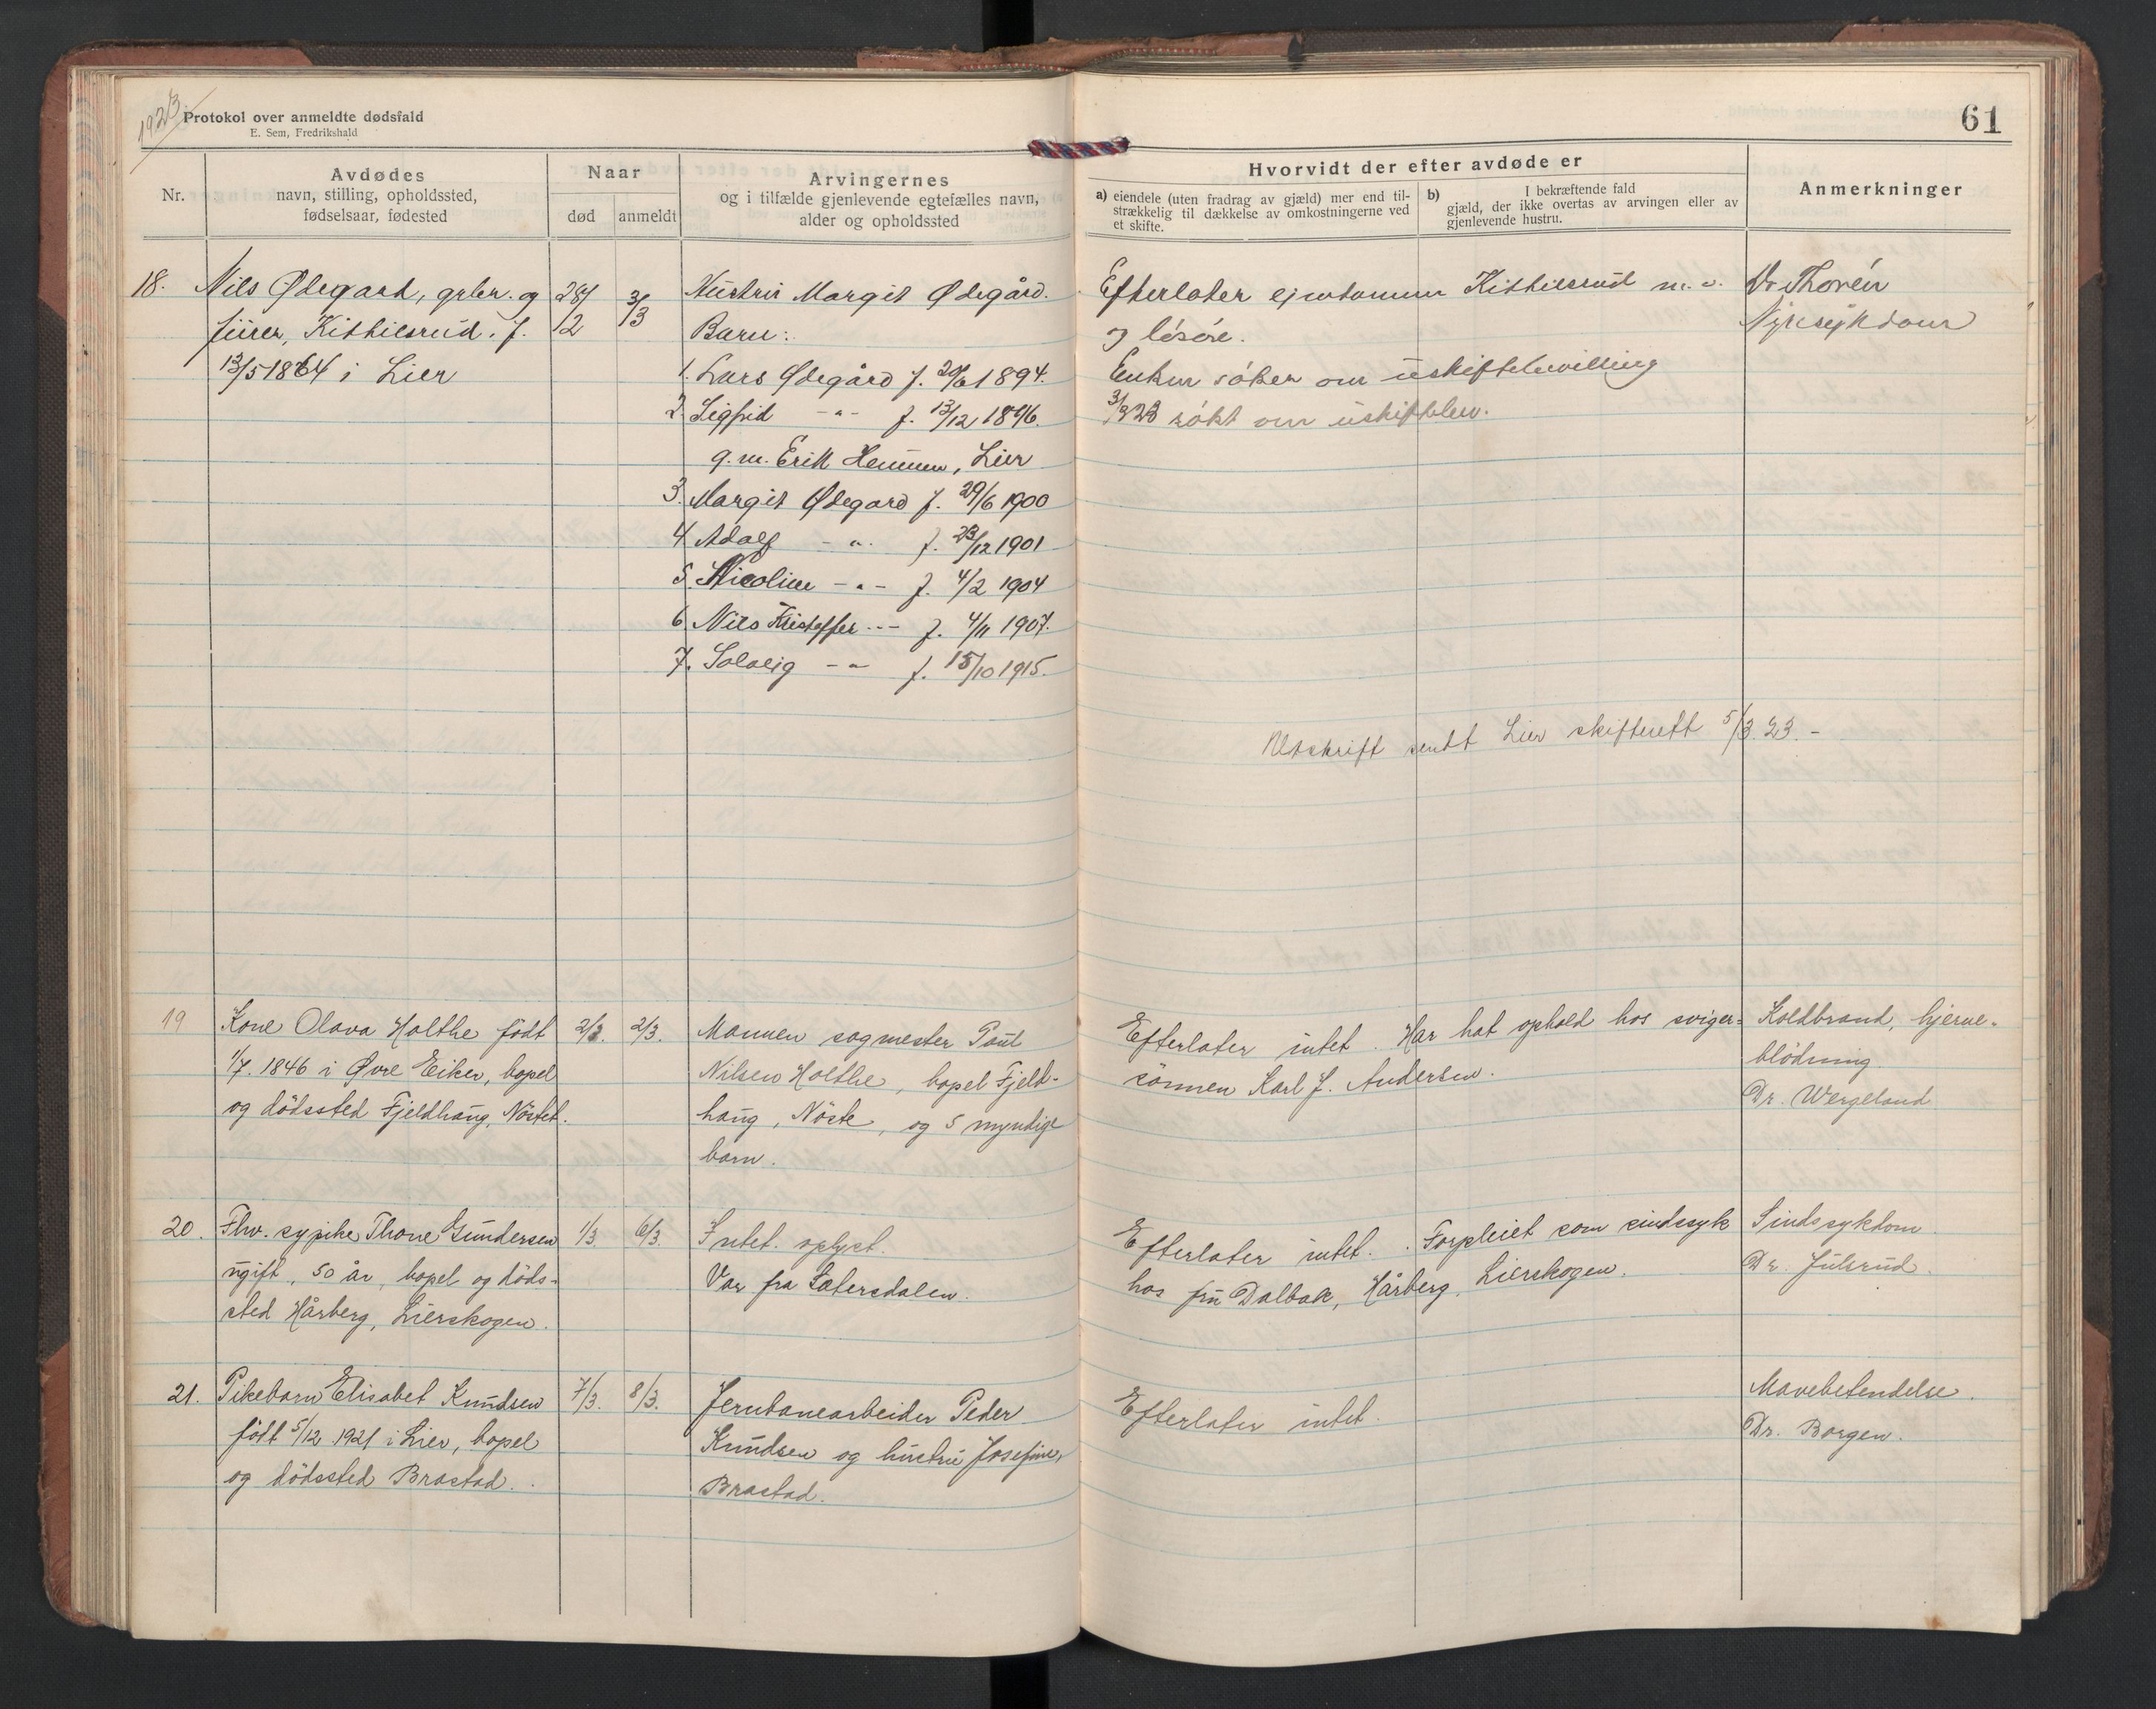 1923
Protokol over anmeldte dødsfald
E. Sem, Fredrikshald
61
Nr.
Avdødes
navn, stilling, opholdssted,
fødselsaar, fødested
Naar
død
anmeldt
Arvingernes
og i tilfælde gjenlevende egtefælles navn,
alder og opholdssted
Hvorvidt der efter avdøde er
a) eiendele (uten fradrag av gjæld) mer end til-
strækkelig til dækkelse av omkostningerne ved
et skifte.
b) I bekræftende fald
gjæld, der ikke overtas av arvingen eller av
gjenlevende hustru.
Anmerkninger
18.
Nils Ødegard, grbr. og
Kittilsrud. f.
13/5 1864 i Lier
28/2
3/3
Hustru Margit Ødegård.
Barn:
1. Lars Ødegård f. 20/6 1894.
2. Sigfrid -"- f. 13/12 1896.
g.m. Erik Hennum, Lier
3. Margit Ødegard f. 29/6 1900
4. Adolf -"- f. 23/12 1901
5. Nicoline -"- f. 4/2 1904
6. Nils Kristoffer -"- f. 4/11 1907.
7. Solveig -"- f. 15/10 1915.
Efterlater eiendommen Kittilsrud m.v.
og løsøre.
Enken søker om uskiftebevilling
3/3 23 søkt om uskiftebev.
Dr Thorén
Nyresykdom
Utskrift sendt Lier skifterett 5/3 23. -
19
Kone Olava Holthe født
1/7. 1846 i Øvre Eiker, bopel
og dödssted Fjeldhaug, Nöstet.
2/3.
2/3.
Mannen sagmester Paul
Nilsen Holthe, bopel Fjeld-
haug, Nöste, og 5 myndige
barn.
Efterlater intet. Har hat ophold hos sviger-
sönnen Karl J. Andersen.
Koldbrand, hjerne-
blödning
Dr. Wergeland
20.
Fhv. sypike Thone Gundersen
ugift, 50 år, bopel og döds-
sted Hårberg, Lierskogen.
1/3.
6/3.
Intet oplyst.
Var fra Sætersdalen.
Efterlater intet. Forpleiet som sindssyk
hos fru Dalbak, Hårberg, Lierskogen.
Sindssykdom
Dr. Julsrud.
21.
Pikebarn Elisabet Knudsen
född 5/12 1921 i Lier, bopel
og dödssted Brastad.
7/3.
8/3.
Jernbanearbeider Peder
Knudsen og hustru Josefine,
Brastad.
Efterlater intet.
Mavebetendelse.
Dr. Borgen.